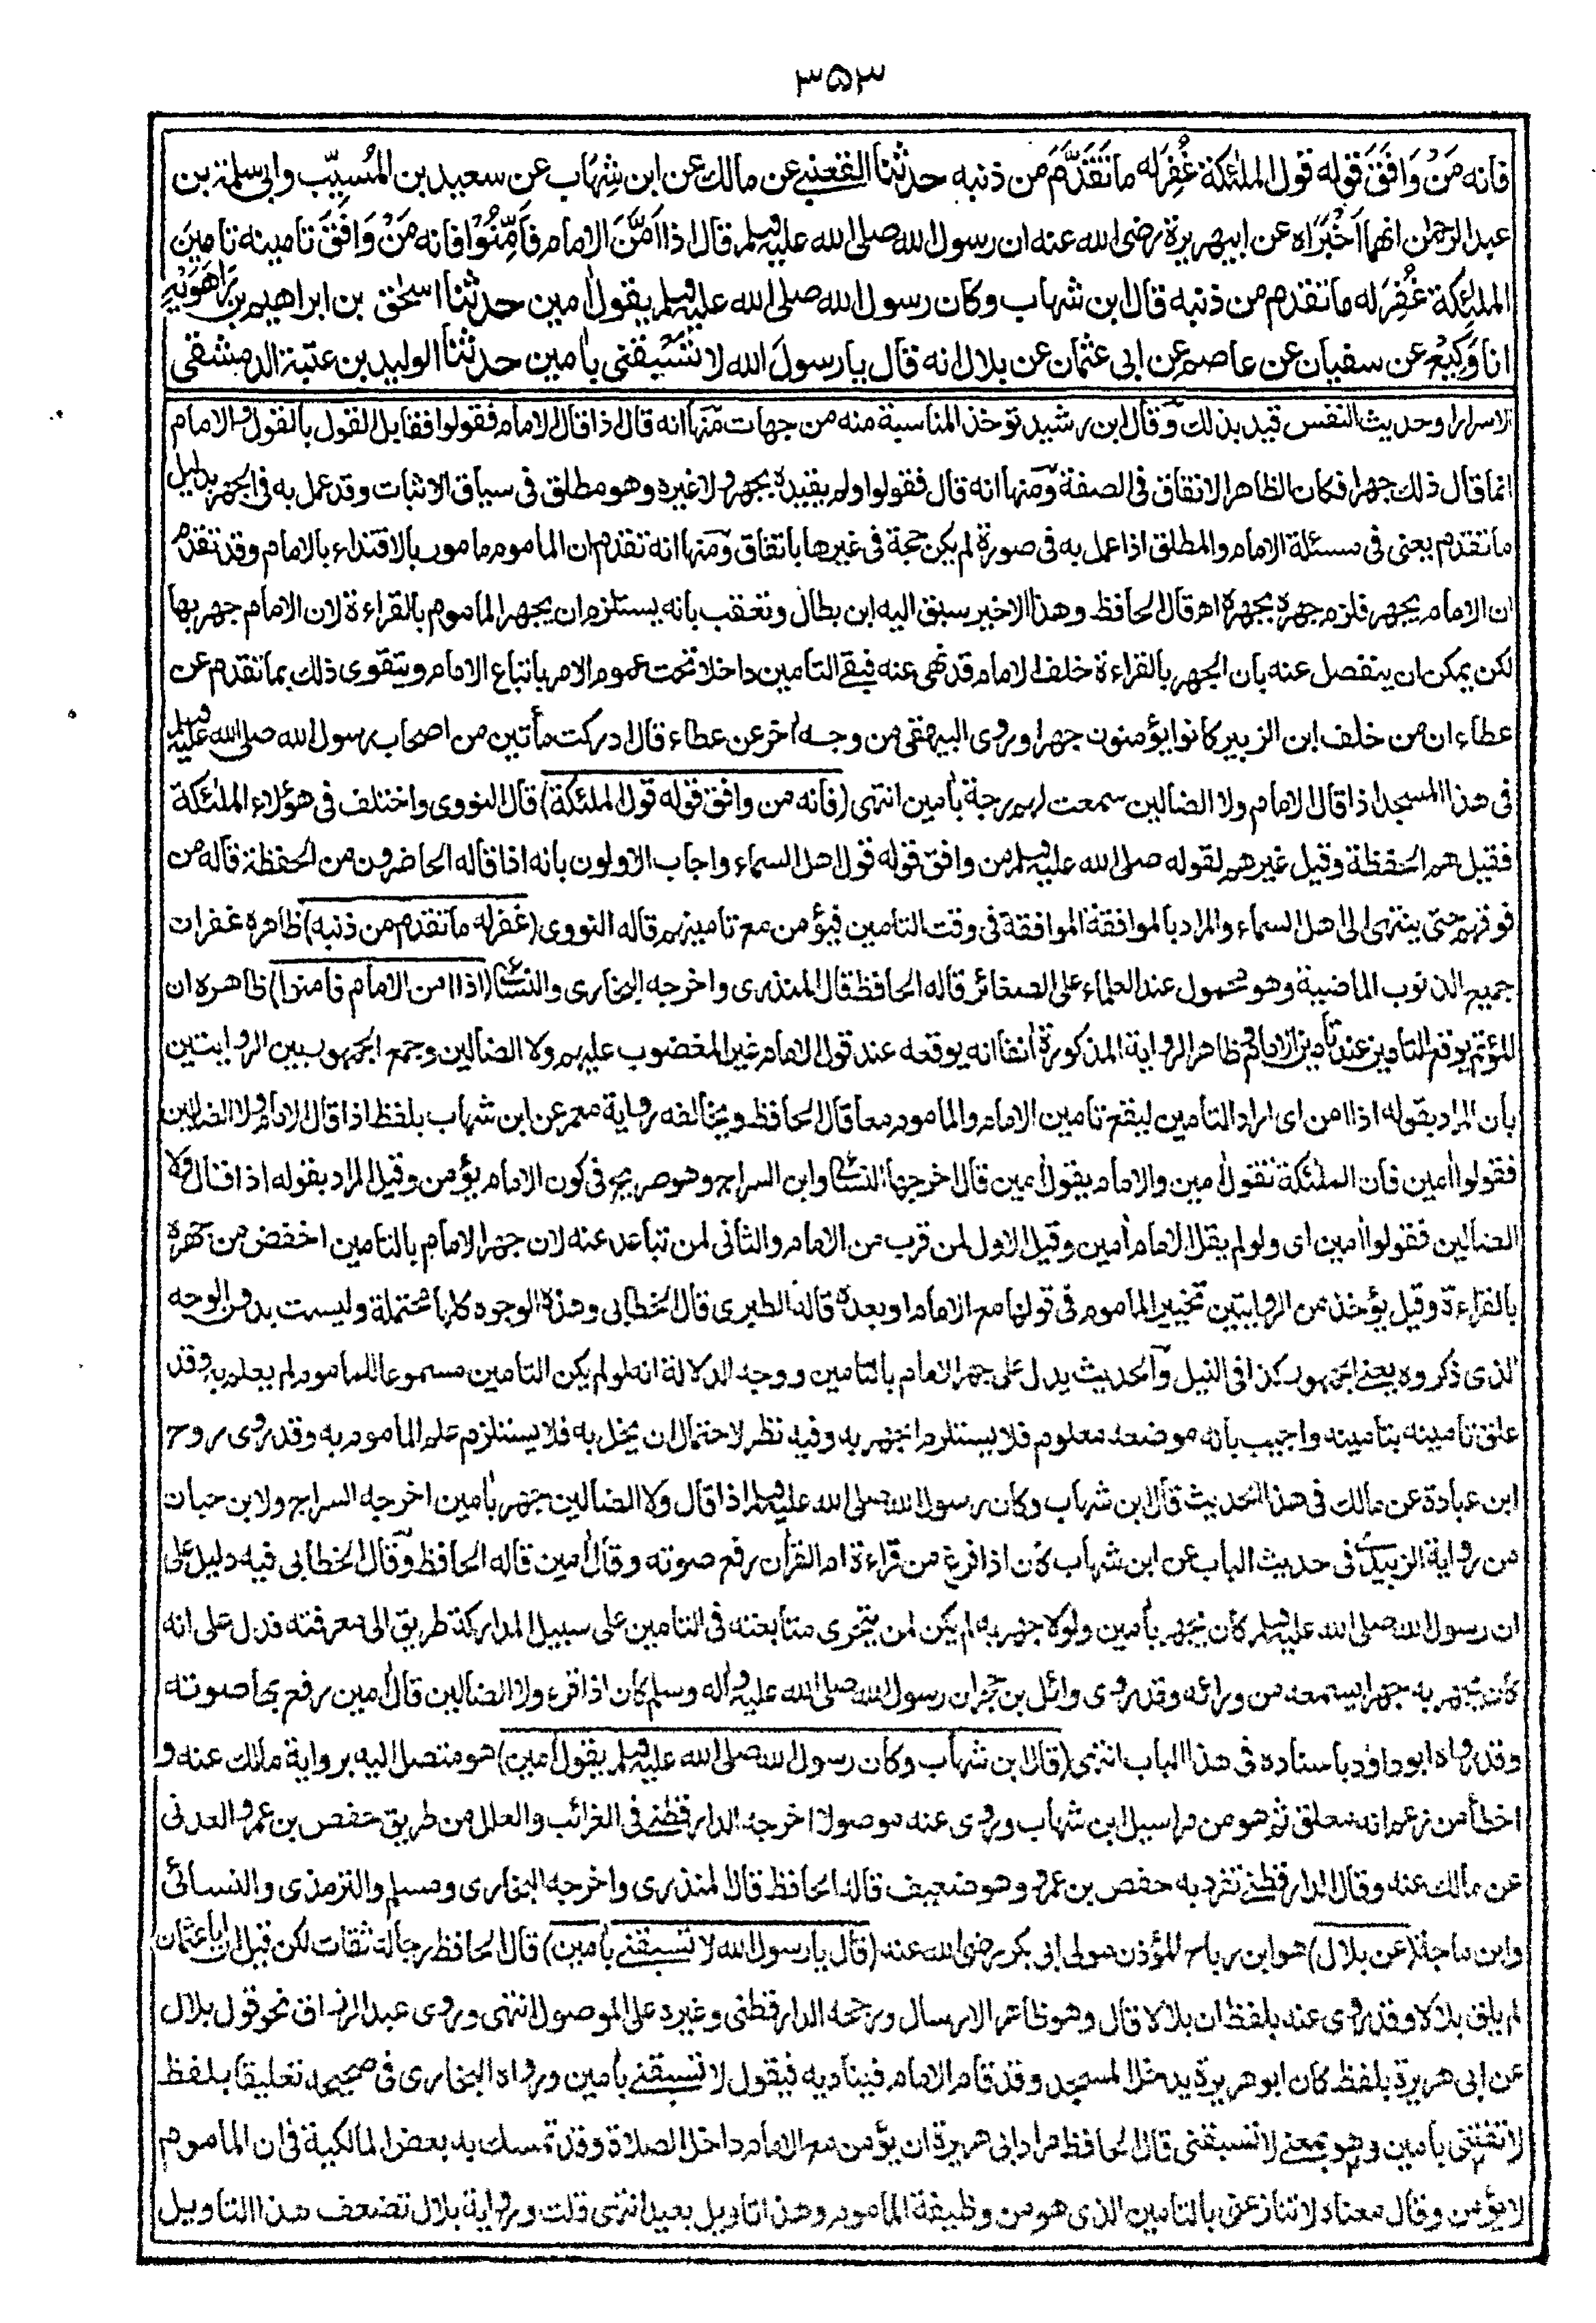 ۳۵۳
فانه مَنْ وَافَقَ قوله قول الملٰئكة غُفِرَ له ما تَقَدَّمَ من ذنبه حدثنا القعنبي عن مالك عن ابن شِهَاب عن سعيد بن المُسيّب وابى سلمة بن
عبد الرحمٰن انهما اَخْبَرَاه عن ابيهريرة رضى الله عنه ان رسول الله صلى الله عليه وسلم قال اذا اَمَّنَ الامام فَاَمِّنُوْا فانه مَنْ وَافَقَ تامينه تامينَ
الملٰئكة غُفِرَ له ما تقدم من ذنبه قال ابن شهاب وكان رسول الله صلى الله عليه وسلم يقول اٰمين حدثنا اسحٰق بن ابراهيم بن رَاهَوَيْهِ
انا وَكِيْع عن سفيان عن عاصم عن ابى عثمان عن بلال انه قال يا رسولَ الله لا تَسْبِقْنى باٰمين حدثنا الوليد بن عتبة الدمشقى
الاسرار وحديث النفس قيد بذلك وقال ابن رشيد توخذ المناسبة منه من جهات منها انه قال اذا قال الامام فقولوا فقابل القول بالقول والامام
انما قال ذلك جهرا فكان الظاهر الاتفاق فى الصفة ومنها انه قال فقولوا ولم يقيده بجهر ولا غيره وهو مطلق فى سياق الاثبات وقد عمل به فى الجهر بدليل
ما تقدم يعنى فى مسئلة الامام والمطلق اذا عمل به فى صورة لم يكن حجة فى غيرها باتفاق ومنها انه تقدم ان الماموم مامور بالاقتداء بالامام وقد تقدم
ان الامام يجهر فلزم جهره بجهره اهـ قال الحافظ وهذا الاخير سبق اليه ابن بطال وتعقب بانه يستلزم ان يجهر الماموم بالقراءة لان الامام جهر بها
لكن يمكن ان ينفصل عنه بان الجهر بالقراءة خلف الامام قد نهى عنه فبقى التامين داخلا تحت عموم الامر باتباع الامام ويتقوى ذلك بما تقدم عن
عطاء ان من خلف ابن الزبير كانوا يؤمنون جهرا وروى البيهقى من وجه اٰخر عن عطاء قال ادركت مأتين من اصحاب رسول الله صلى الله عليه وسلم
فى هذا المسجد اذا قال الامام ولا الضالين سمعت لهم رجة باٰمين انتهى (فانه من وافق قوله قول الملئكة) قال النووى واختلف فى هؤلاء الملٰئكة
فقيل هم الحفظة وقيل غيرهم لقوله صلى الله عليه وسلم من وافق قوله قول اهل السماء واجاب الاولون بانه اذا قاله الحاضرون من الحفظة قاله من
فوقهم حتى ينتهى الى اهل السماء والمراد بالموافقة الموافقة فى وقت التامين فيؤمن مع تامينهم قاله النووى (غفر له ما تقدم من ذنبه) ظاهره غفران
جميع الذنوب الماضية وهو محمول عند العلماء على الصغائر قاله الحافظ قال المنذرى واخرجه البخارى والنسائى (اذا امن الامام فامنوا) ظاهره ان
المؤتم يوقع التامين عند تأمين الامام وظاهر الرواية المذكورة اٰنفا انه يوقعه عند قول الامام غير المغضوب عليهم ولا الضالين وجمع الجمهور بين الروايتين
بان المراد بقوله اذا امن اى اراد التامين ليقع تامين الامام والماموم معا قال الحافظ ويخالفه رواية معمر عن ابن شهاب بلفظ اذا قال الامام ولا الضالين
فقولوا اٰمين فان الملئكة تقول اٰمين والامام يقول اٰمين قال اخرجها النسائى وابن السراج وهو صريح فى كون الامام يؤمن وقيل المراد بقوله اذا قال ولا
الضالين فقولوا اٰمين اى ولو لم يقل الامام اٰمين وقيل الاول لمن قرب من الامام والثانى لمن تباعد عنه لان جهر الامام بالتامين اخفض من جهره
بالقراءة وقيل يؤخذ من الروايتين تخيير الماموم فى قولها مع الامام او بعده قاله الطبرى قال الخطابى وهذه الوجوه كلها محتملة وليست بدون الوجه
الذى ذكروه يعنى الجمهور كذا فى النيل والحديث يدل على جهر الامام بالتامين ووجه الدلالة انه لو لم يكن التامين مسموعا للماموم لم يعلم به وقد
علق تامينه بتامينه واجيب بانه موضعه معلوم فلا يستلزم الجهر به وفيه نظر لاحتمال ان يخل به فلا يستلزم علم الماموم به وقد روى روح
ابن عبادة عن مالك فى هذا الحديث قال ابن شهاب وكان رسول الله صلى الله عليه وسلم اذا قال ولا الضالين جهر باٰمين اخرجه السراج ولابن حبان
من رواية الزبيدى فى حديث الباب عن ابن شهاب كان اذا فرغ من قراءة ام القراٰن رفع صوته وقال اٰمين قاله الحافظ وقال الخطابى فيه دليل على
ان رسول الله صلى الله عليه وسلم كان يجهر باٰمين ولولا جهره به لم يكن لمن يتحرى متابعته فى التامين على سبيل المداركة طريق الى معرفته فدل على انه
كان يجهر به جهرا يسمعه من ورائه وقد روى وائل بن حجر ان رسول الله صلى الله عليه واٰله وسلم كان اذا قرء ولا الضالين قال اٰمين رفع بها صوته
وقد رواه ابو داود باسناده فى هذا الباب انتهى (قال ابن شهاب وكان رسول الله صلى الله عليه وسلم يقول اٰمين) هو متصل اليه برواية مالك عنه و
اخطأ من زعم انه معلق ثم هو من مراسيل ابن شهاب وروى عنه موصولا اخرجه الدارقطنى فى الغرائب والعلل من طريق حفص بن عمر والعدنى
عن مالك عنه وقال الدارقطنى تفرد به حفص بن عمرو وهو ضعيف قاله الحافظ قال المنذرى واخرجه البخارى ومسلم والترمذى والنسائى
وابن ماجة (عن بلال) هو ابن رباح المؤذن مولى ابى بكر رضى الله عنه (قال يا رسول الله لا تسبقنى باٰمين) قال الحافظ رجاله ثقات لكن قيل ان ابا عثمان
لم يلق بلالا وقد روى عنه بلفظ ان بلالا قال وهو ظاهر الارسال ورجحه الدارقطنى وغيره على الموصول انتهى وروى عبد الرزاق نحو قول بلال
عن ابى هريرة بلفظ كان ابو هريرة يدخل المسجد وقد قام الامام فيناديه فيقول لا تسبقنى باٰمين ورواه البخارى فى صحيحه تعليقا بلفظ
لا تفتنى باٰمين وهو بمعنى لا تسبقنى قال الحافظ مراد ابى هريرة ان يؤمن مع الامام داخل الصلاة وقد تمسك به بعض المالكية فى ان الماموم
لا يؤمن وقال معناه لا تنازعنى بالتامين الذى هو من وظيفة الماموم وهذا تاويل بعيد انتهى قلت ورواية بلال تضعف هذا التاويل